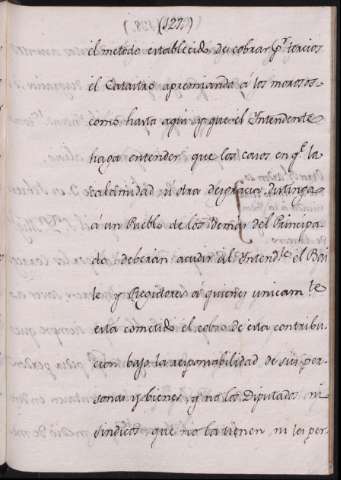 (127)
el metodo establecido de cobrar pr. tercios
el Catastro apremiando á los morosos
como hasta aqui y que el Yntendente
haga entender que los casos en qe. la
calamidad ú otra desgracia distinga
á un Pueblo de los demas del Principa-
do deberán acudir al Yntendte. el Bai-
le y Regidores á quienes unicamte.
está cometido el cobro de esta contribu-
cion bajo la responsabilidad de sus per-
sonas y bienes, y no los Diputados ni
sindicos que no la tienen, ni les per-